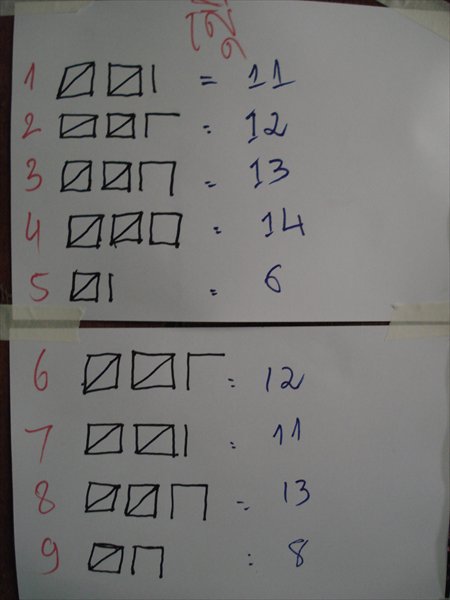 1 = 11
2 : 12
3 = 13
4 = 14
5 = 6
6 = 12
7 : 11
8 = 13
9 : 8